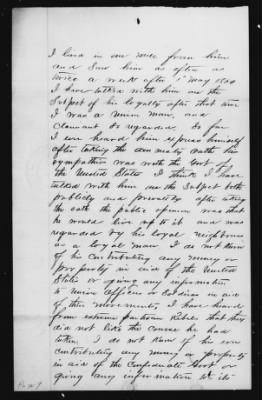 I lived in one mile from him
and saw him as often as
twice a week after 1st May 1864
I have talked with him on the
Subject of his loyalty after that time
I was a Union man, and
Claimant so regarded. So far
I ever heard him express himself
after taking the amnesty oath his
sympathies was with the Govt of
the United States I think I have
talked with him on the Subject both
publicly and privately after taking
the oath the public opinion was that
he would live up to it and was
regarded by his loyal neighbours
as a loyal man I do not know
of his contributing any money or
property in aid of the United
States or giving any information
to Union Officers or Soldiers in aid
of their movements I have heard
from extreme partisan Rebels that they
did not like the course he had
taken. I do not know of his ever
contributing any money or property
in aid of the Confederate Govt or
giving any information to its